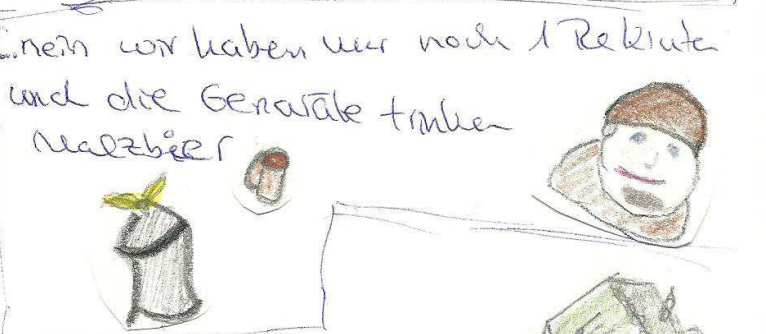 ...nein wir haben nur noch 1 Rekruten
und die Generäle trinken
Malzbier